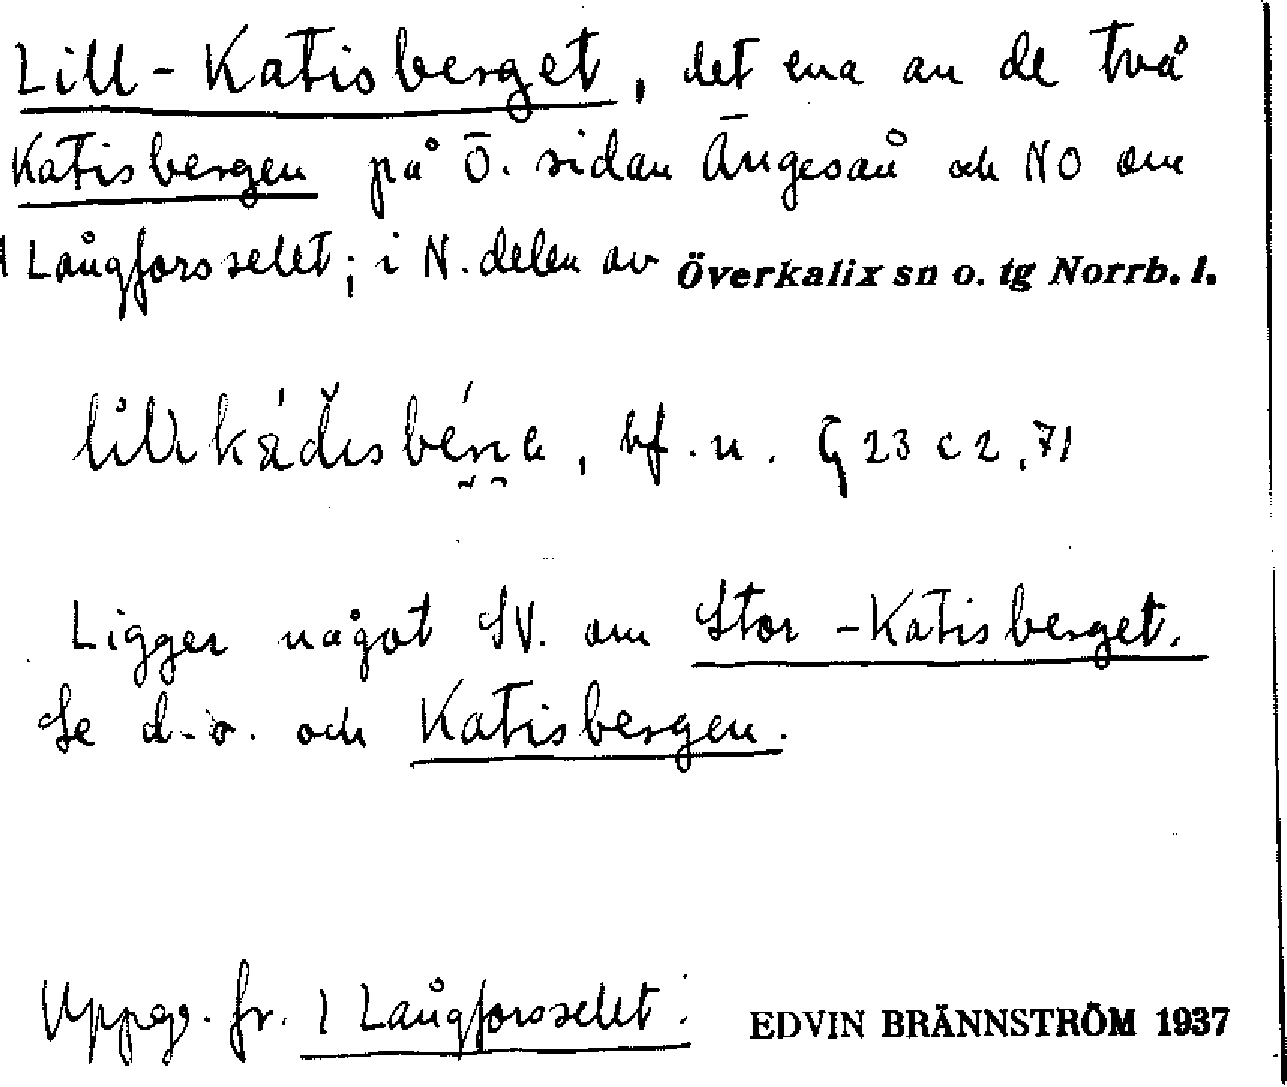 Lill-Katisberget, det ena av de två
Katisbergen på Ö. sidan Ängesån och NO om
1 Långforsselet; i N. delen av Överkalix sn o. tg Norrb. l.
bf. n. G 23 c 2,71
Ligger något SV. om Stor-Katisberget.
Se d-o. och Katisbergen.
Uppg. fr. 1 Långforsselet.
EDVIN BRÄNNSTRÖM 1937